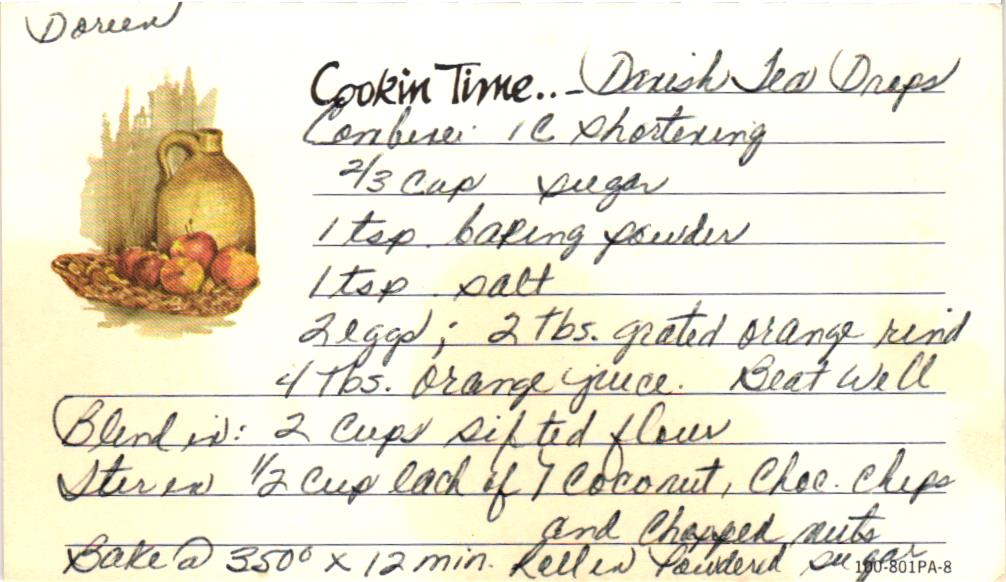 Doreen
Cookin Time.. - Danish Tea Drops
Combine: 1 C shortening
2/3 cup sugar
1 tsp. baking powder
1 tsp. salt
2 eggs; 2 Tbs. grated orange rind
4 Tbs. orange juice. Beat well
Blend in: 2 cups sifted flour
Stir in 1/2 cup each of coconut, Choc. chips
and chopped nuts
Bake @ 350° x 12 min. Roll in Powdered sugar
100-801PA-8